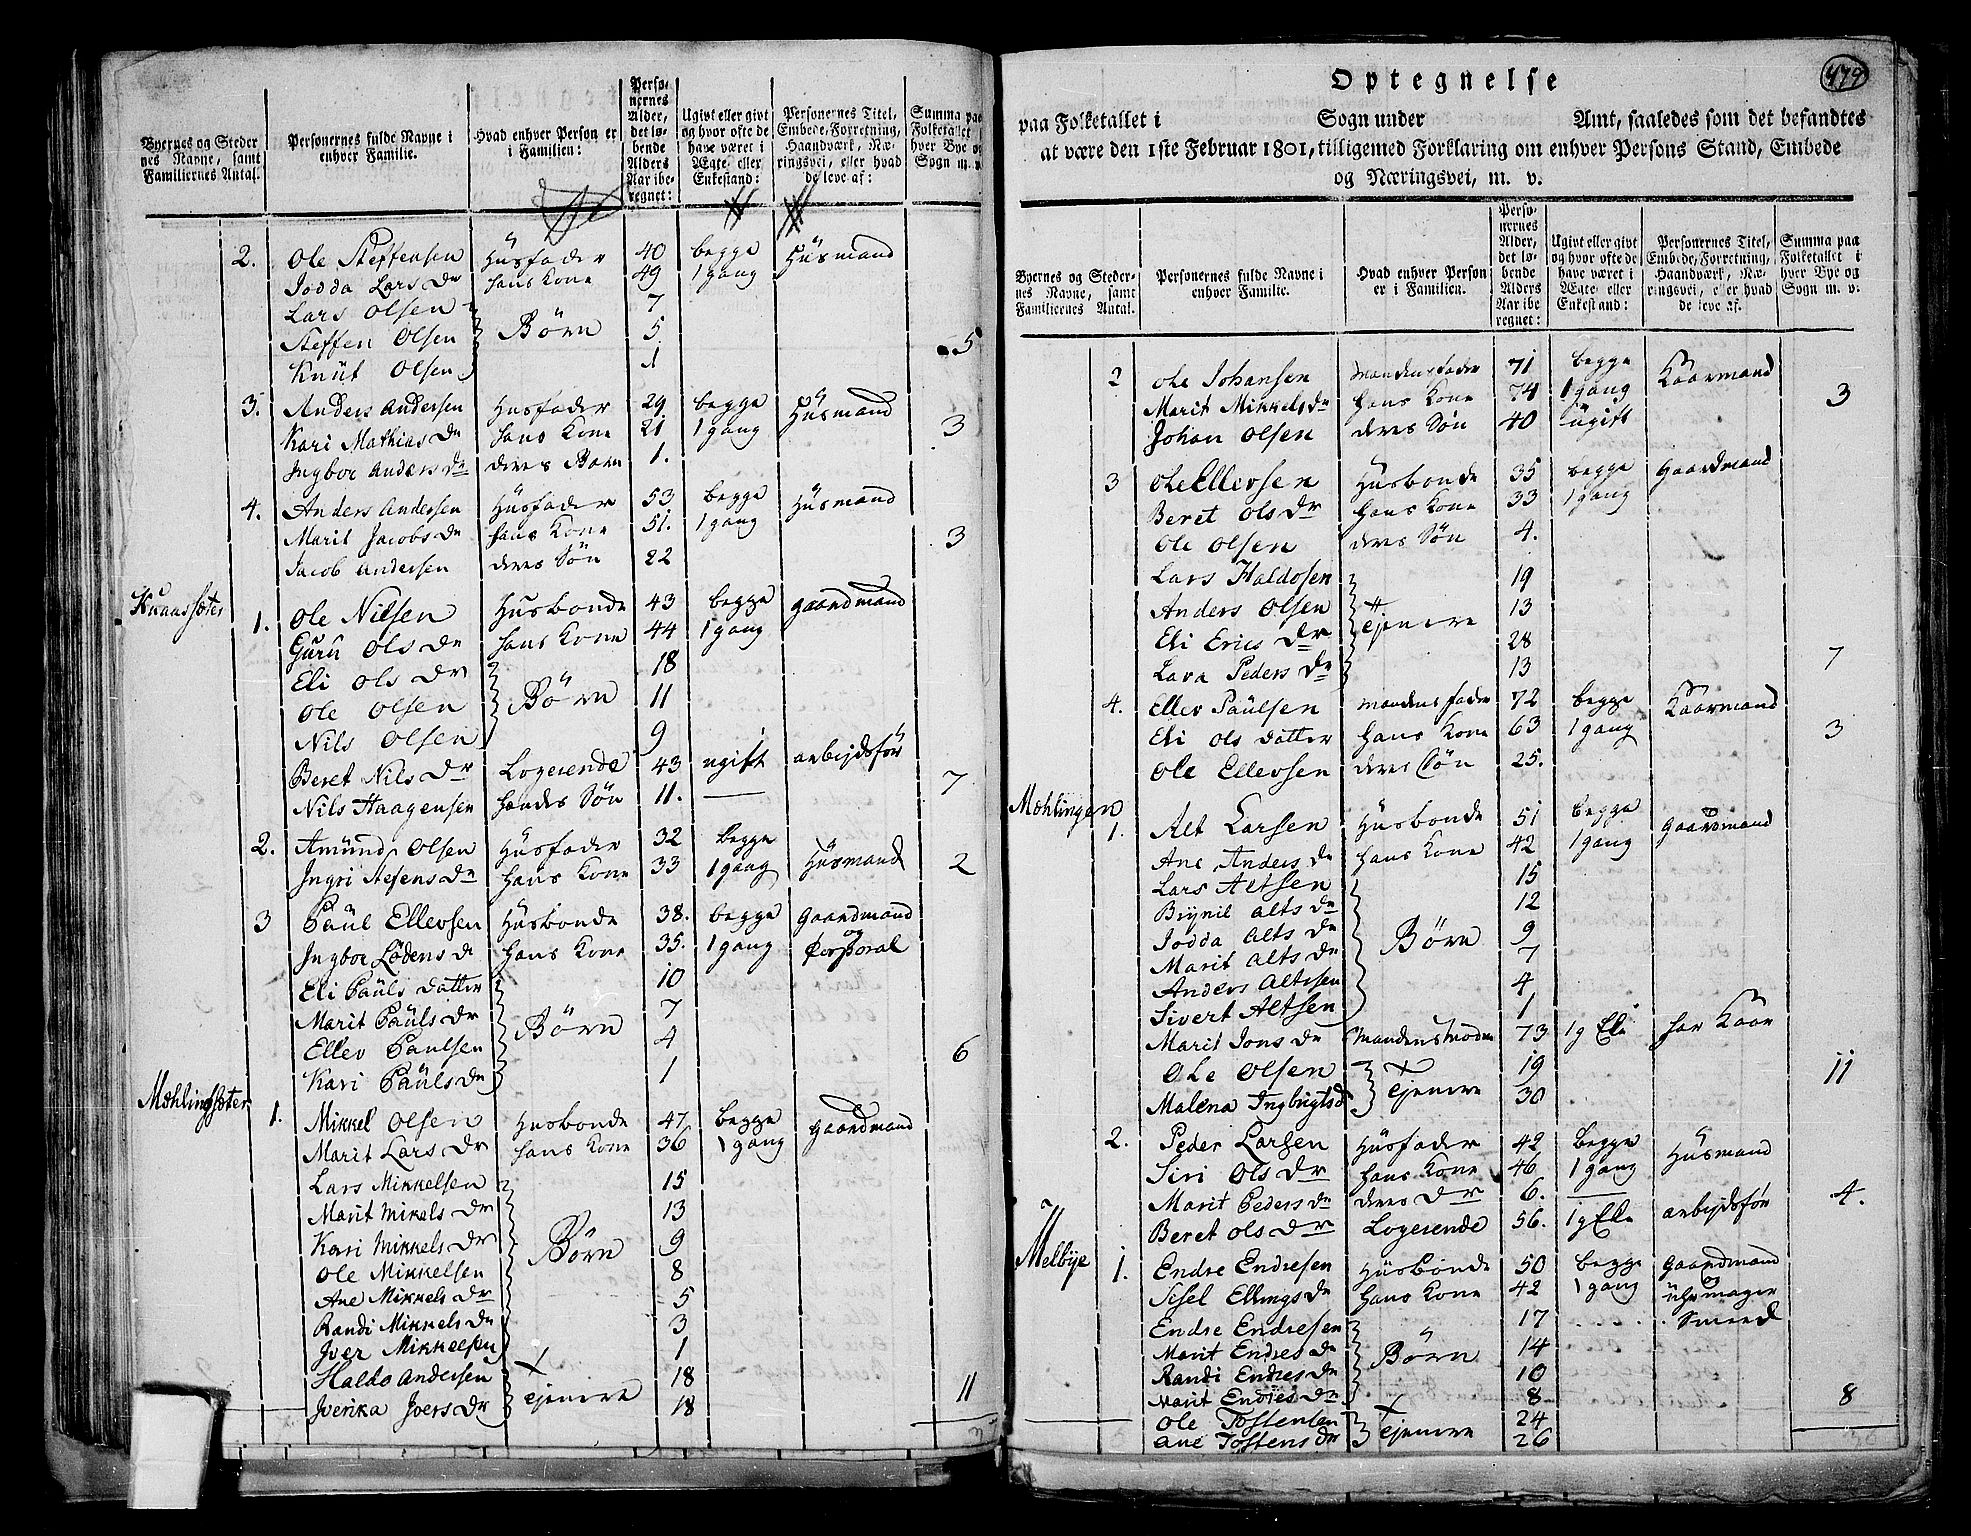 Byernes og Steder nes Navne, samt Familiernes Antal.
Personernes fulde Navne i enhver Familie.
Hvad enhver Person er i Familien:
Perso- nernes Alder, det lø- bende Alders Aar ibe- regnet:
Ugivt eller givt og hvor ofte de have været i Ægte- eller Enkestand:
Personernes Titel, Embede, Forretning, Haandværk, Næ- ringsvei, eller hvad de leve af:
Summa paa Folketallet hver Bye o Sogn m. v.
2. Ole Steffensen Husfader 40 begge Husmand
Jodda Lars Dr hans Kone 49 1 gang
Lars Olsen 7
Steffen Olsen Børn 5. 5
Knut Olsen 1
3. Anders Andersen Husfader 29 begge Husmand
Kari Mathias Dr hans Kone 21 1 gang 3
Ingbor Anders Dr deres Barn 1.
4. Anders Andersen Husfader 53 begge Husmand
Marit Jacobs Dr hans Kone 51. 1 gang 3
Jacob Andersen deres Søn 22
Knaassæter 1. Ole Nilsen Husbonde 43 begge gaardmand
Guru Ols Dr hans Kone 44 1 gang
Eli Ols Dr 18
Ole Olsen Børn 11
Nils Olsen 9
Beret Nils Dr Logerende 43 ugift arbejdsför
Nils Haagensen hendes Søn 11. 7
2. Amund Olsen Husfader 32 begge Husmand
Ingri Stefens Dr hans Kone 33 1 gang 2
3 Paul Ellevsen Husbonde 38. begge gaardmand og
Ingbor Lødens d hans Kone 35. 1 gang Corporal
Eli Pauls datter 10
Marit Pauls Dr Børn 7
Ellev Paulsen 4 6
Kari Pauls Dr 1
Mæhlingsæter 1. Mikkel Olsen Husbonde 47 begge gaardmand
Marit Lars Dr hans Kone 36 1 gang
Lars Mikkelsen 15
Marit Mikels Dr 13
Kari Mikkels Dr Børn 9
Ole Mikkelsen 8
Ane Mikkels Dr 5
Randi Mikkels Dr 3
Iver Mikkelsen 1
Haldo Andersen 18
Iverika Ivers Dr Tjenere 18 11
479
Optegnelse
paa Folketallet i Sogn under Amt, saaledes som det befandtes
at være den 1ste Februar 1801, tilligemed Forklaring om enhver Persons Stand, Embede
og Næringsvei, m. v.
Byernes og Steder- nes Navne, samt Familiernes Antal.
Personernes fulde Navne i enhver Familie.
Hvad enhver Person er i Familien.
Perso- nernes Alder, det lø- bende Alders Aar ibe regnet:
Ugivt eller givt og hvor ofte de have været i Ægte- eller Enkestand:
Personernes Titel, Embede, Forretning, Haandværk, Næ- ringsvei, eller hvad de leve af.
Summa paa Folketallet i hver Bye og Sogn m. v.
2 Ole Johansen Mandens fader 71 begge Kaarmand
Marit Mikkels Dr hans Kone 74 1 gang 3
Johan Olsen deres Søn 40 ugift
3 Ole Ellevsen Husbonde 35 begge gaardmand
Beret Ols Dr hans Kone 33 1 gang
Ole Olsen deres Søn 4.
Lars Haldosen 19
Anders Olsen Tjenere 13
Eli Erics Dr 28
Lava Peders Dr 13 7
4. Ellev Paulsen Mandens fader 72 begge Kaarmand
Eli Ols datter hans Kone 63 1 gang 3
Ole Ellevsen deres Søn 25.
Mæhlingen 1. Alt Larsen Husbonde 51 begge gaardmand
Ane Anders Dr hans Kone 42 1 gang
Lars Altsen 15
Brynil Alts Dr 12
Jodda Alts Dr Børn 9
Marit Alts Dr 7
Anders Altesen 4
Sivert Altsen 1
Marit Jons Dr Mandens Moder 73 1 g Eke har Kaar
Ole Olsen 19
Malena Ingbrigtsd Tjenere 30 11
2. Peder Larsen Husfader 42 begge Husmand
Siri Ols Dr hans Kone 46 1 gang
Marit Peders Dr deres Dr 6.
Beret Ols Dr Logerende 56. 1 g Eke arbejdsför 4.
Melbÿe 1. Endre Endresen Husbonde 50 begge gaardmand
Sesel Ellings Dr hans Kone 42 1 gang uhrmager
Endre Endresen 17 Smed
Marit Endres Dr Børn 14
Randi Endres Dr 10
Marit Endres Dr 8 8
Ole Tostensen 24
Ane Tostens Dr Tjenere 26